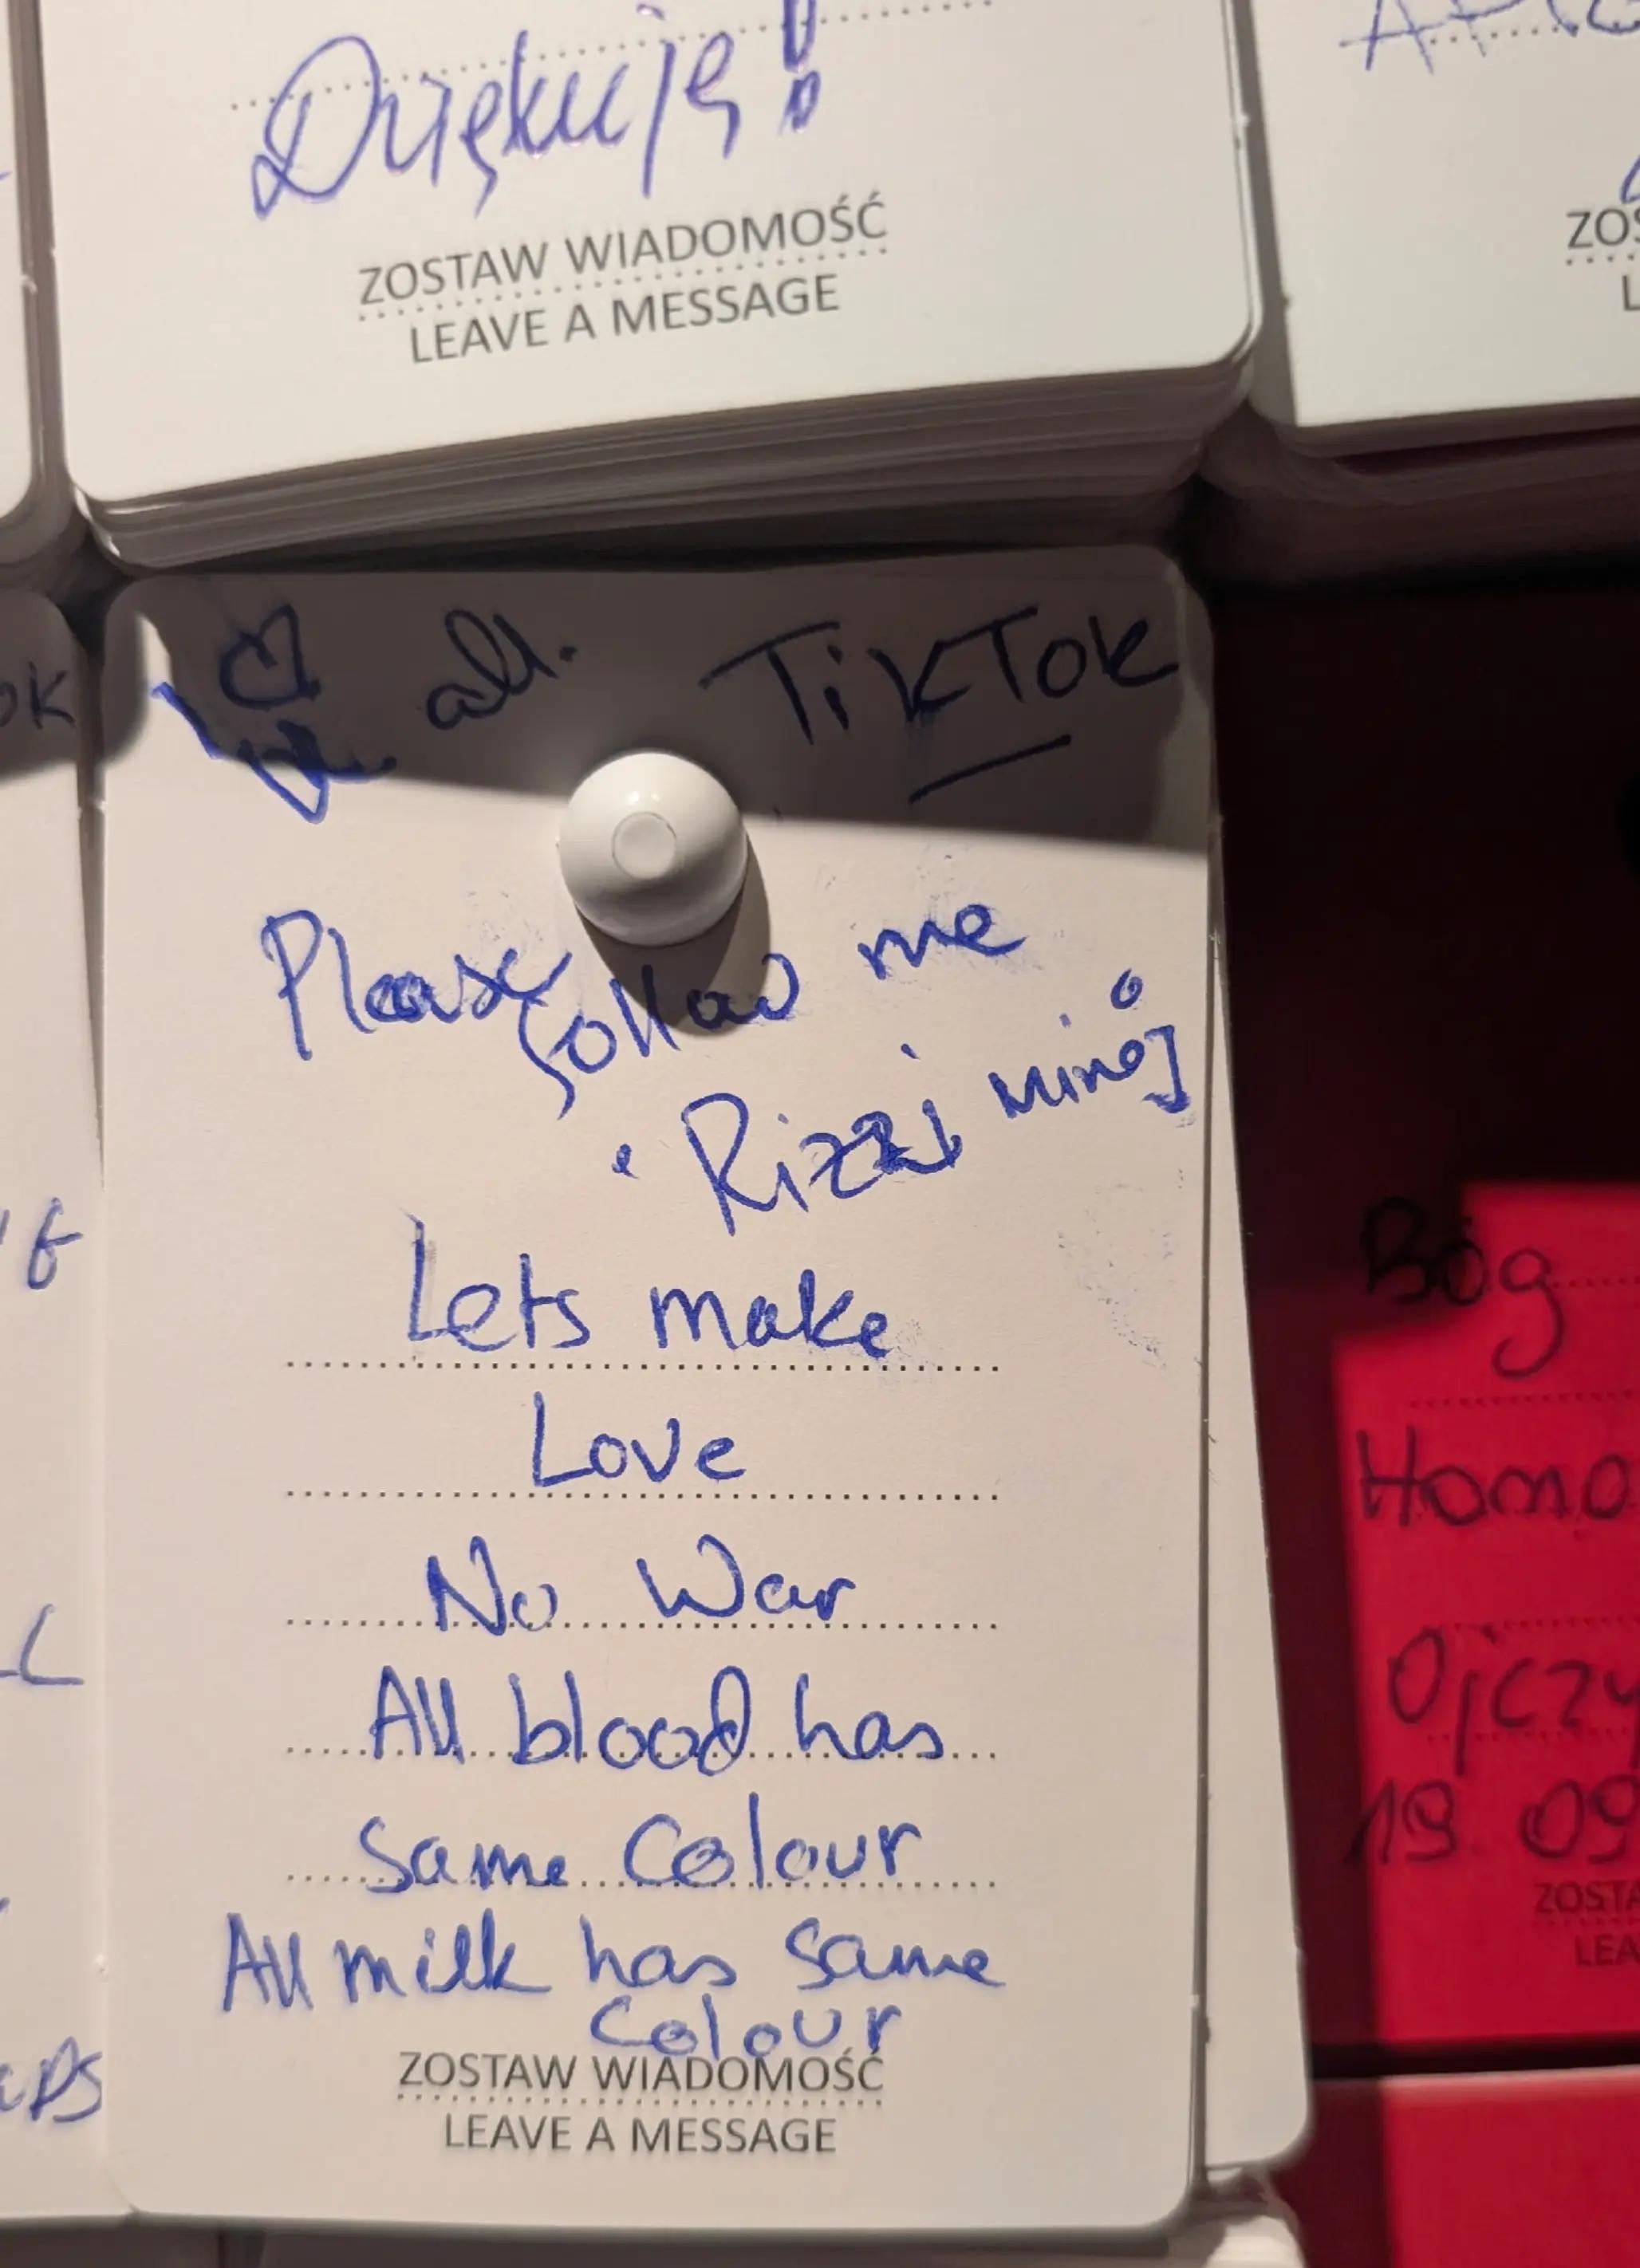 Dziękuję!
ZOSTAW WIADOMOŚĆ
LEAVE A MESSAGE
all. TikTok
Please follow me
Rizzi
Lets make
Love
No War
All blood has
Same Colour
All milk has same
Colour
ZOSTAW WIADOMOŚĆ
LEAVE A MESSAGE
Bóg
Homo
Ojczy
19 09
ZOSTA
LEA